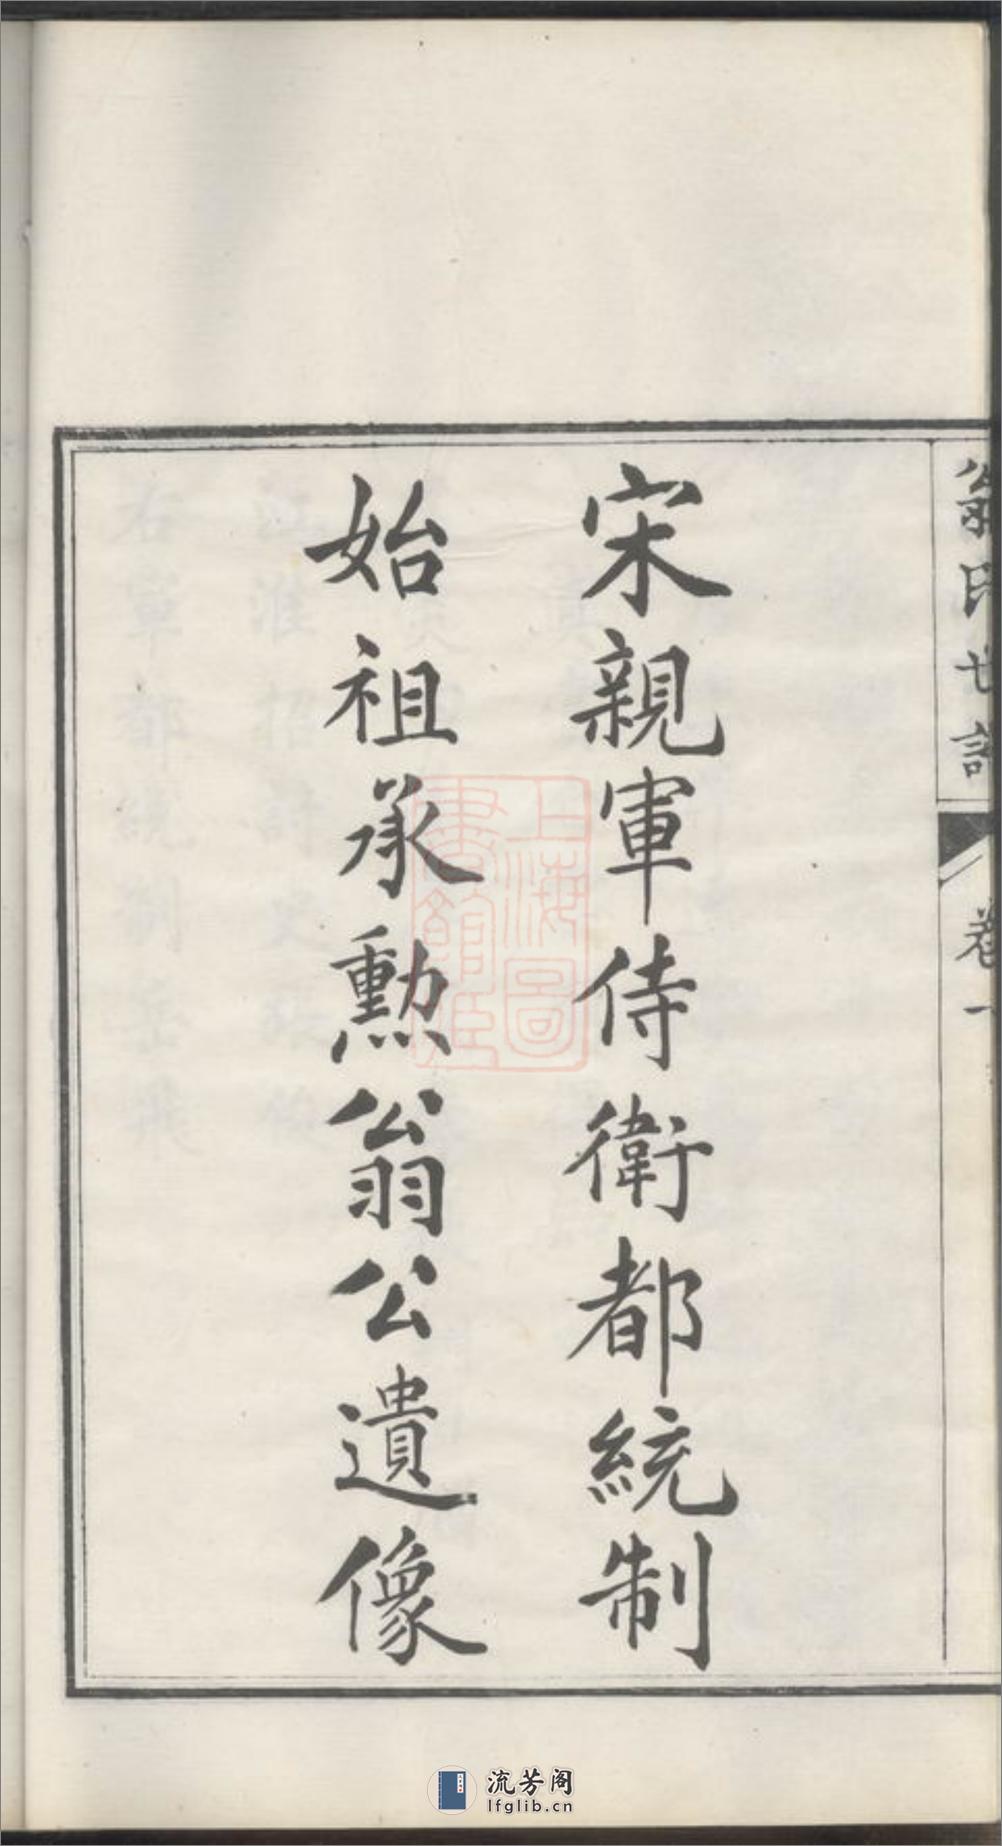 翁氏世譜
卷一
宋親軍侍衛都統制
始祖承勲翁公遺像
上海圖
書館藏
流芳阁
lfglib.cn